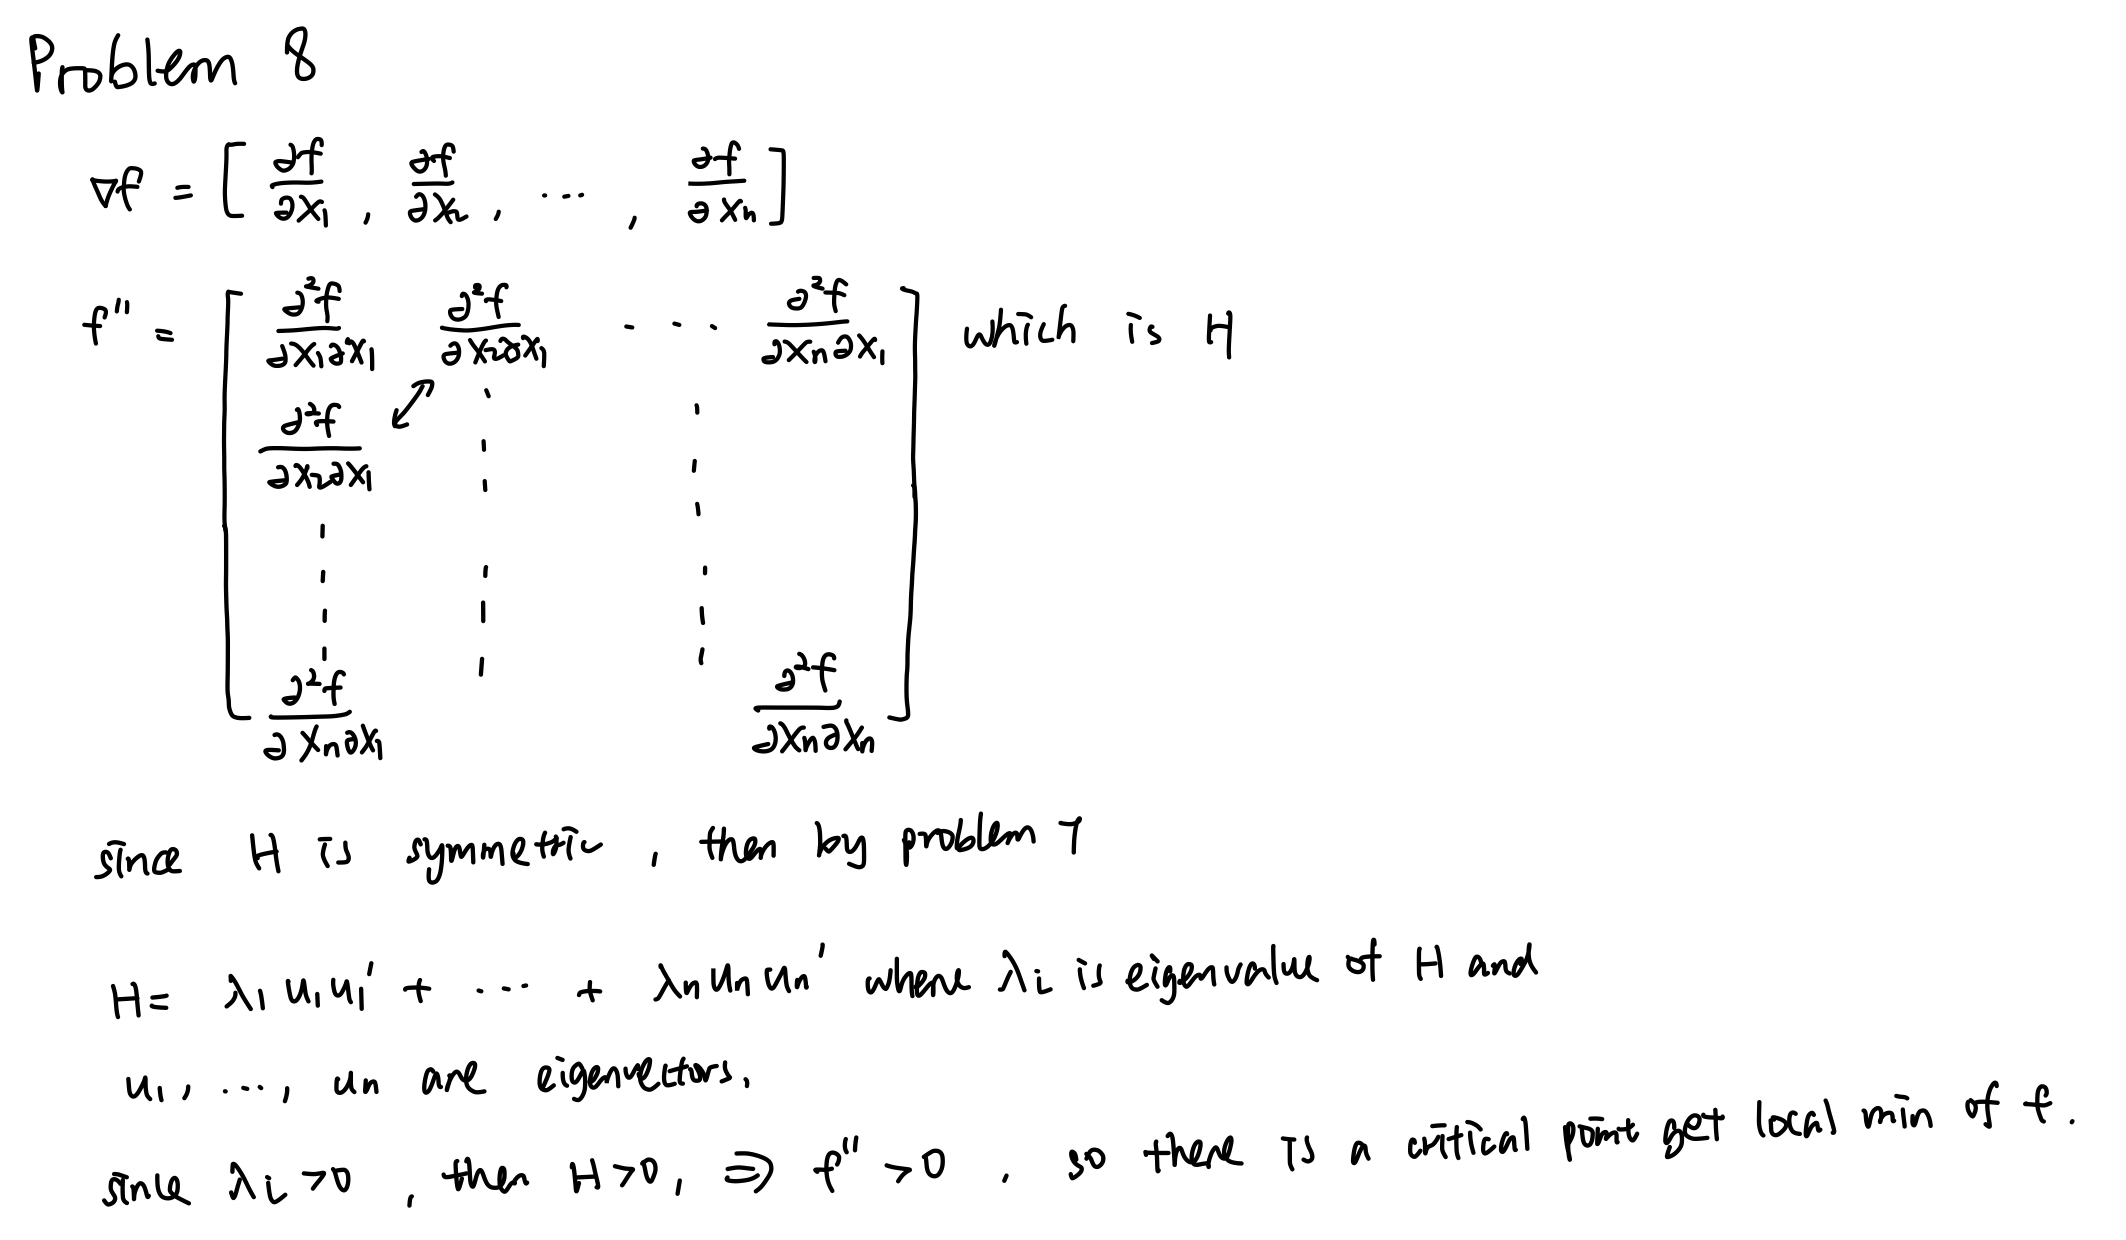 Problem 8
∇f = [ ∂f/∂x₁ , ∂f/∂x₂ , ··· , ∂f/∂xₙ ]
f'' = [ ∂²f/∂x₁∂x₁ ∂²f/∂x₂∂x₁ ··· ∂²f/∂xₙ∂x₁ ] which is H
∂²f/∂x₂∂x₁ ↔
∂²f/∂xₙ∂x₁ ∂²f/∂xₙ∂xₙ
since H is symmetric , then by problem 7
H = λ₁ u₁ u₁' + ··· + λₙ uₙ uₙ' where λᵢ is eigenvalue of H and
u₁ , ··· , uₙ are eigenvectors.
since λᵢ > 0 , then H > 0, ⇒ f'' > 0 , so there is a critical point get local min of f .